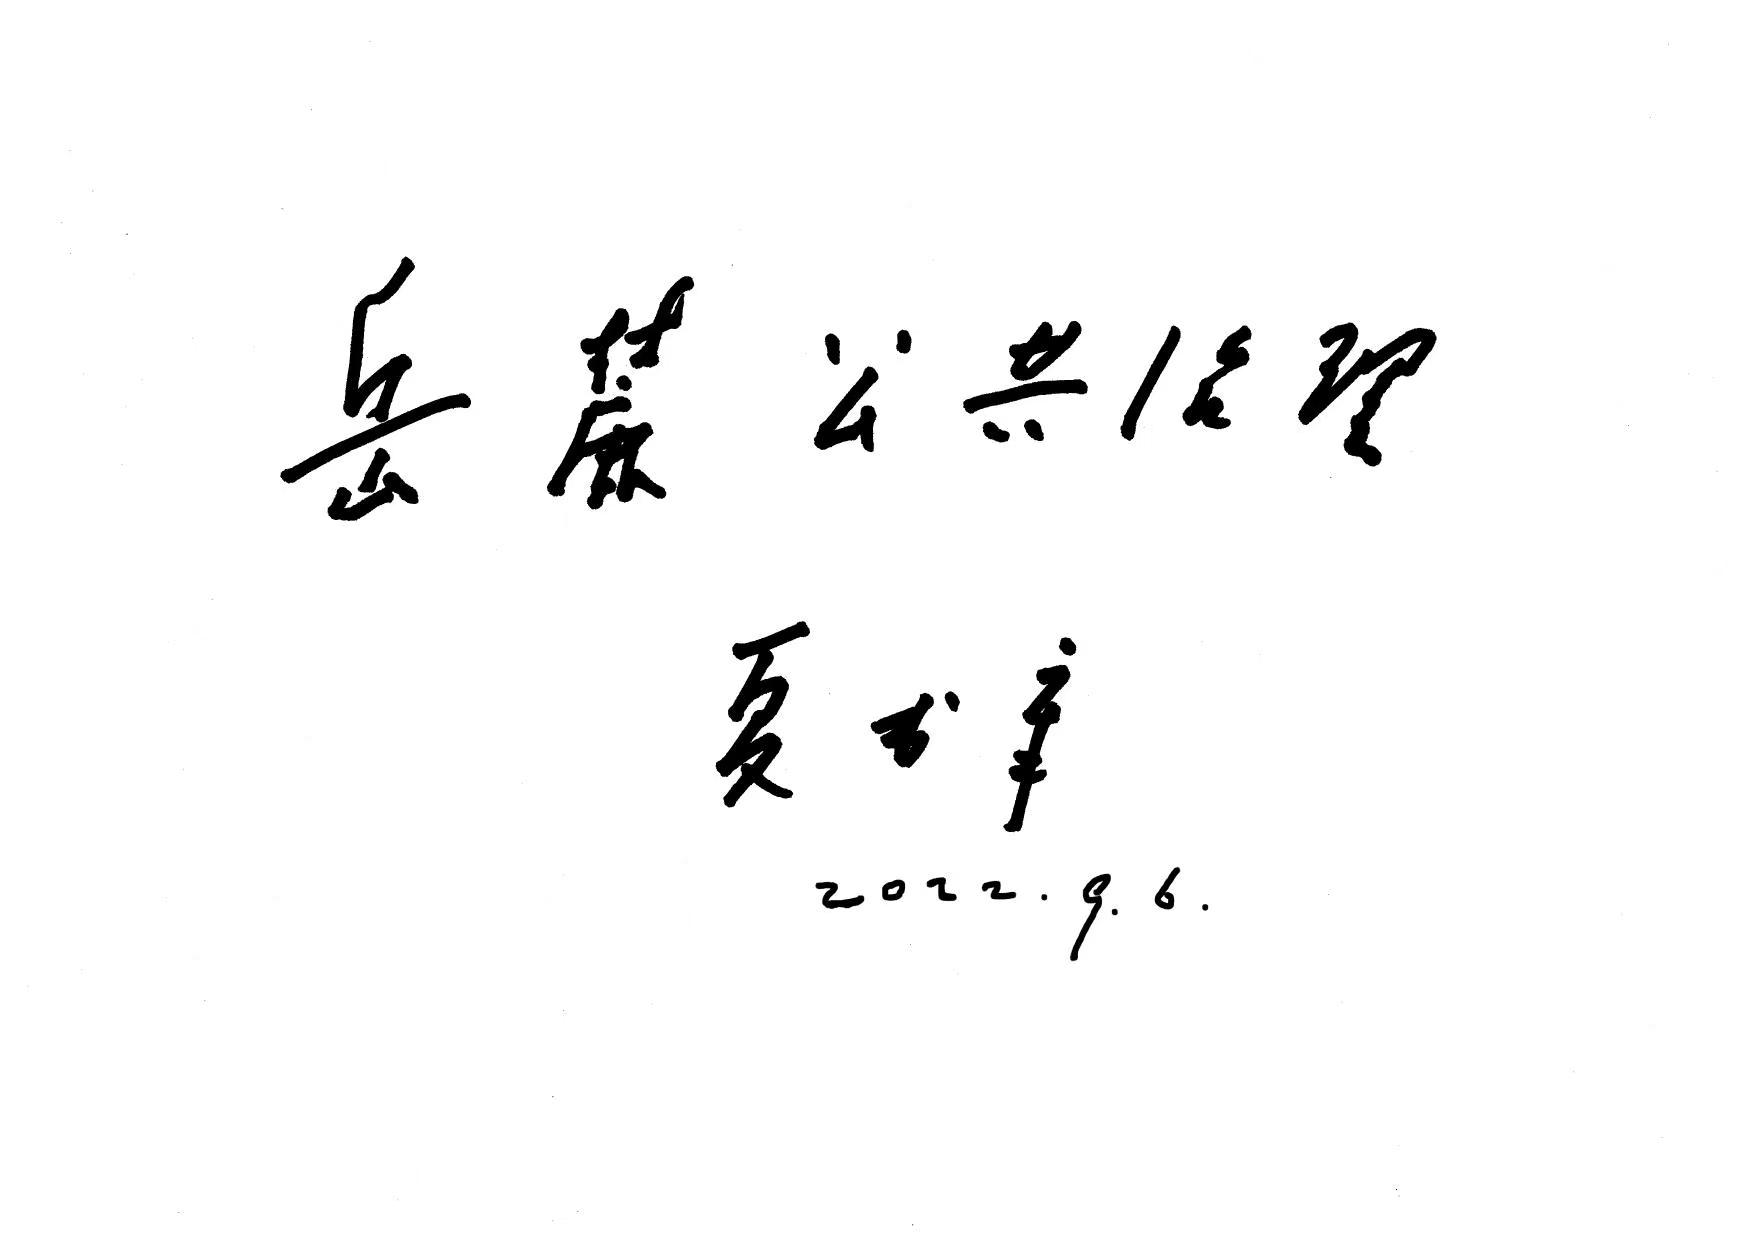 岳麓公共治理
夏书章
2022.9.6.